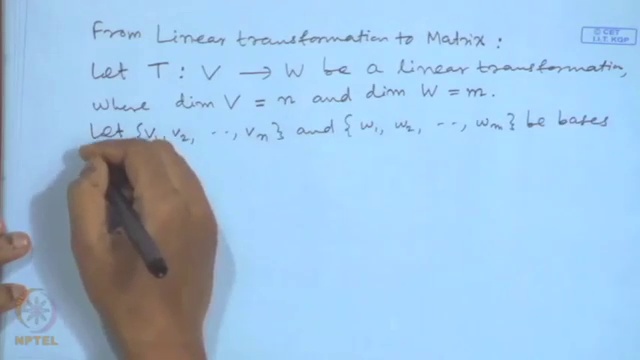 From Linear transformation to Matrix :
© CET
I.I.T. KGP
Let T : V → W be a linear transformation,
where dim V = n and dim W = m.
Let {v₁, v₂, ..., vₙ} and {w₁, w₂, ..., wₘ} be bases
NPTEL